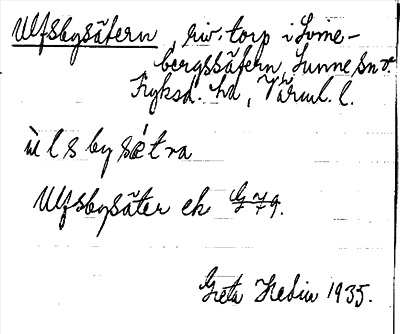 Ulfsbysätern, riv. torp i Svine-
bergssätern, Sunne sn o.
Fryksd. hd, Värml. l.
ùlsbysétra
Ulfsbysäter ek G 79.
Greta Hedin 1935.